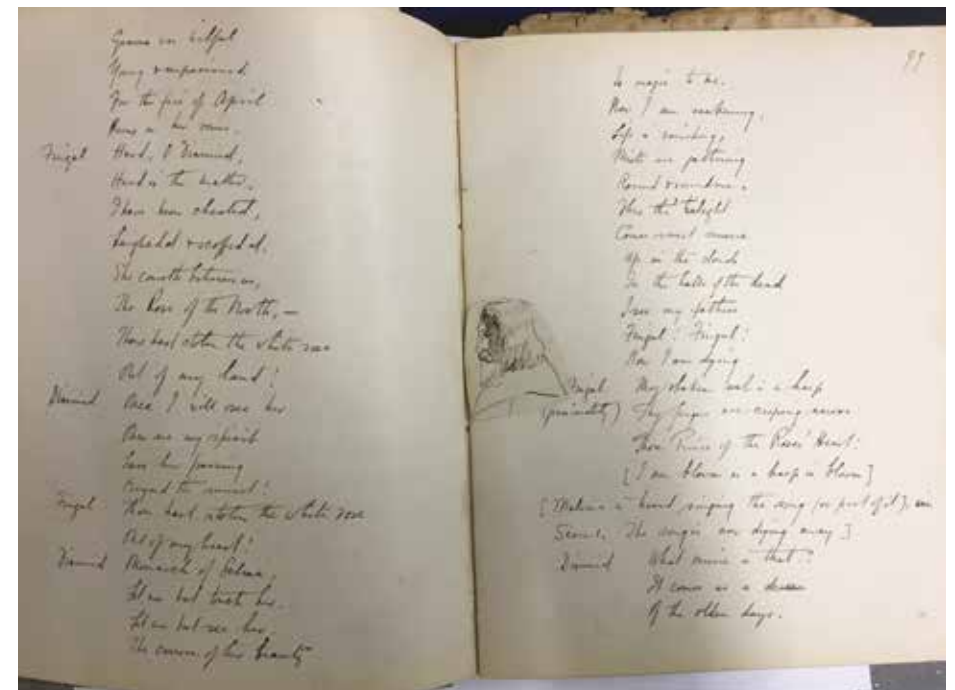 Young & impassioned
For the fire of April
Runs in her veins.
Fingal Hard, O Diarmid,
Hard is the matter,
I have been cheated,
Laughed at & scoffed at.
She cometh between us,
The Rose of the North, —
Thou hast stolen the white rose
Out of my hand!
Diarmid Once I will see her
Once ere my spirit
Beyond the sunset!
Fingal Thou hast stolen the white rose
Out of my heart!
Diarmid Monarch of Selma,
Let me but touch her.
Let me but see her
The crown of her beauty
95
Is magic to me.
Now I am weakening,
Life is vanishing,
Mists are gathering
Round
Thro the twilight
Comes sweet music
Up in the clouds
In the halls of the dead
I see my fathers
Fingal! Fingal!
Now I am dying
Fingal My shaken soul is a harp
Thy fingers are creeping across
Thou Prince of the Roses' Heart!
[I am blown as a harp is blown]
[Malvina is heard singing the song (or part of it),
The song is now dying away]
Diarmid What music is that?
It comes as a dream
Of the olden days.